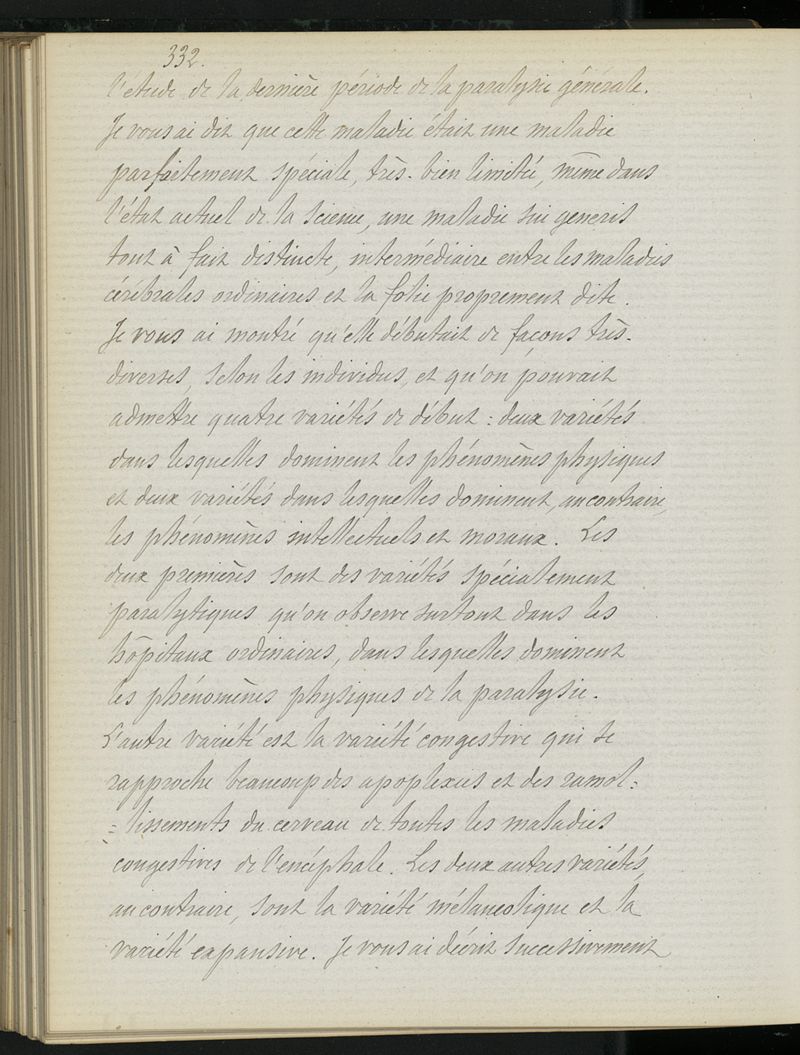 332.
l'étude de la dernière période de la paralysie générale.
Je vous ai dit que cette maladie était une maladie
parfaitement spéciale, très-bien limitée, même dans
l'état actuel de la science, une maladie sui generis
tout à fait distincte, intermédiaire entre les maladies
cérébrales ordinaires et la folie proprement dite.
Je vous ai montré qu'elle débutait de façons très-
diverses, selon les individus, et qu'on pouvait
admettre quatre variétés de début : deux variétés
dans lesquelles dominent les phénomènes physiques
et deux variétés dans lesquelles dominent, au contraire,
les phénomènes intellectuels et moraux. Les
deux premières sont des variétés spécialement
paralytiques qu'on observe surtout dans les
hôpitaux ordinaires, dans lesquelles dominent
les phénomènes physiques de la paralysie.
L'autre variété est la variété congestive qui se
rapproche beaucoup des apoplexies et des ramol=
=lissements du cerveau de toutes les maladies
congestives de l'encéphale. Les deux autres variétés,
au contraire, sont la variété mélancolique et la
variété expansive. Je vous ai décrit successivement